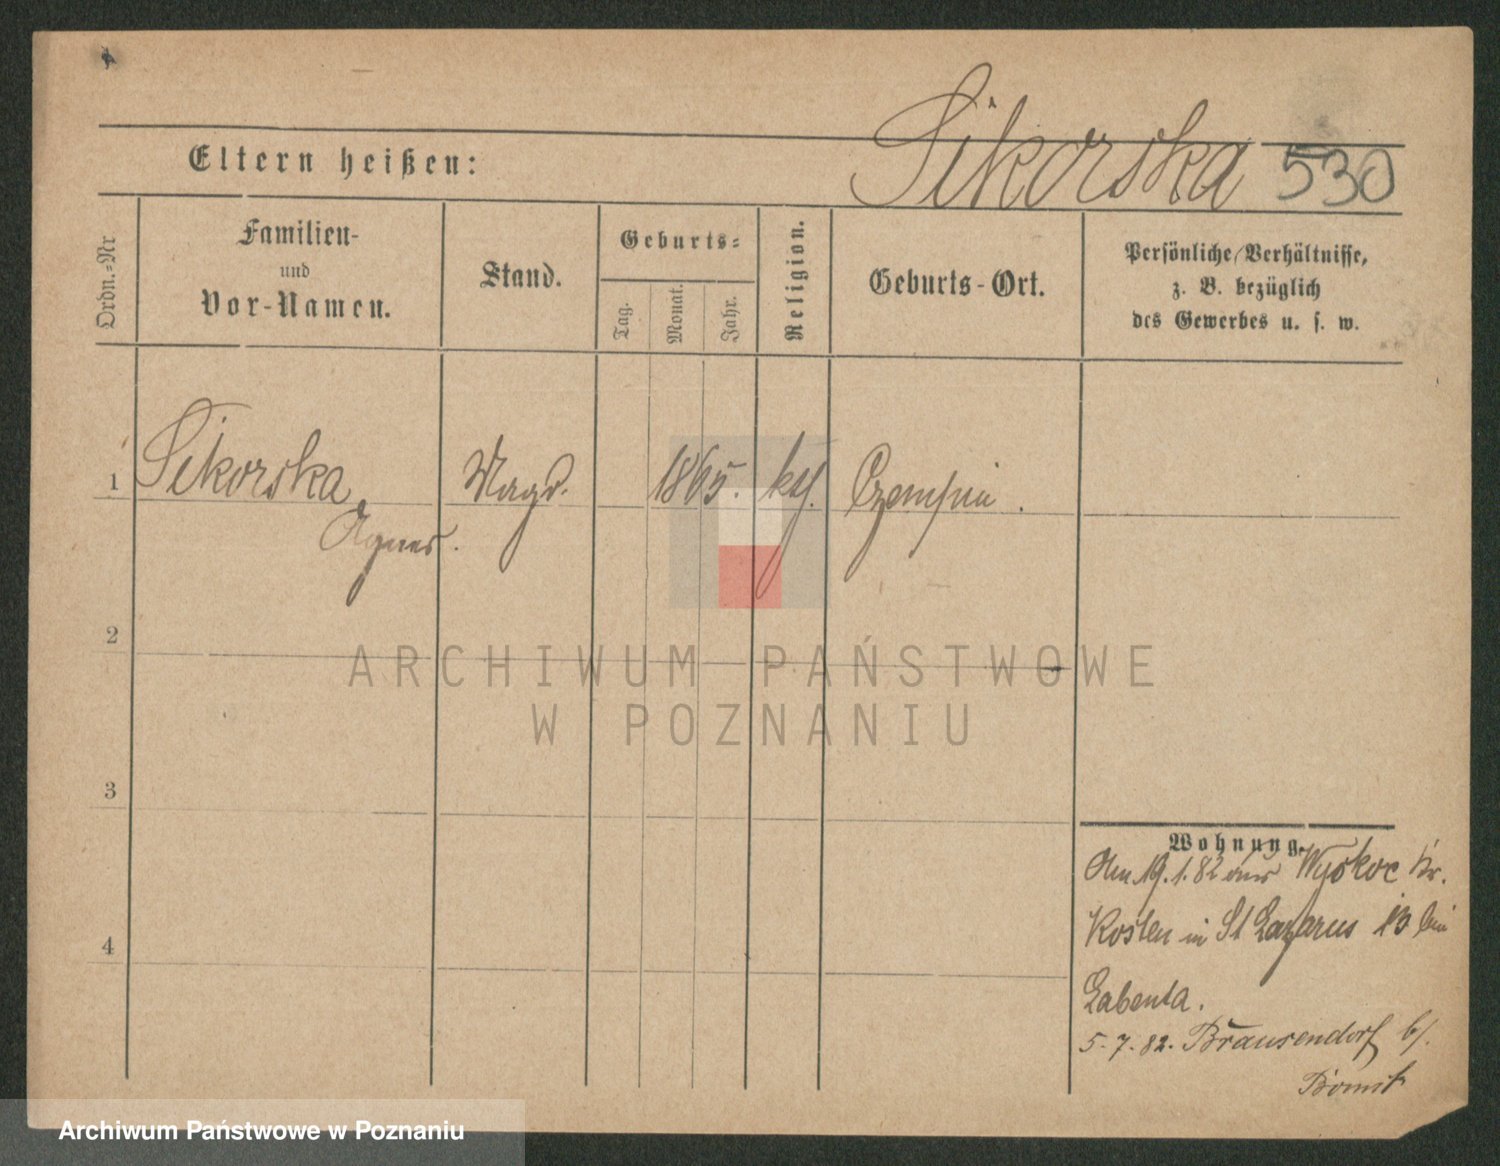 Sikorska 530
Eltern heißen:
Ordn.=Nr
Familien-
und
Vor-Namen.
Stand.
Geburts=
Tag.
Monat.
Jahr.
Religion.
Geburts-Ort.
Persönliche Verhältnisse,
z. B. bezüglich
des Gewerbes u. s. w.
1 Sikorska Magd. 1865. kth. Czempin.
Agnes.
2
ARCHIWUM PAŃSTWOWE
W POZNANIU
3
Wohnung.
Am 19.1.82 aus Wyskoc Kr.
4
Kosten in St Lazarus 13 bei
Labenta.
5.7.82. Brausendorf b/.
Bomst
Archiwum Państwowe w Poznaniu